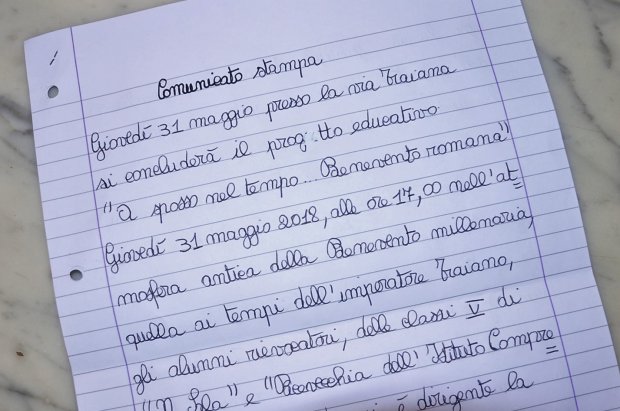 Comunicato stampa
Giovedì 31 maggio presso la via Traiana
si concluderà il prog tto educativo
"A spasso nel tempo... Benevento romana".
Giovedì 31 maggio 2018, alle ore 17,00 nell'at
mosfera antica della Benevento millenaria,
quella ai tempi dell'imperatore Traiano,
gli alunni rievocatori, delle classi V di
Sala" e "Pacevecchia dell'Istituto Compre
dirigente la